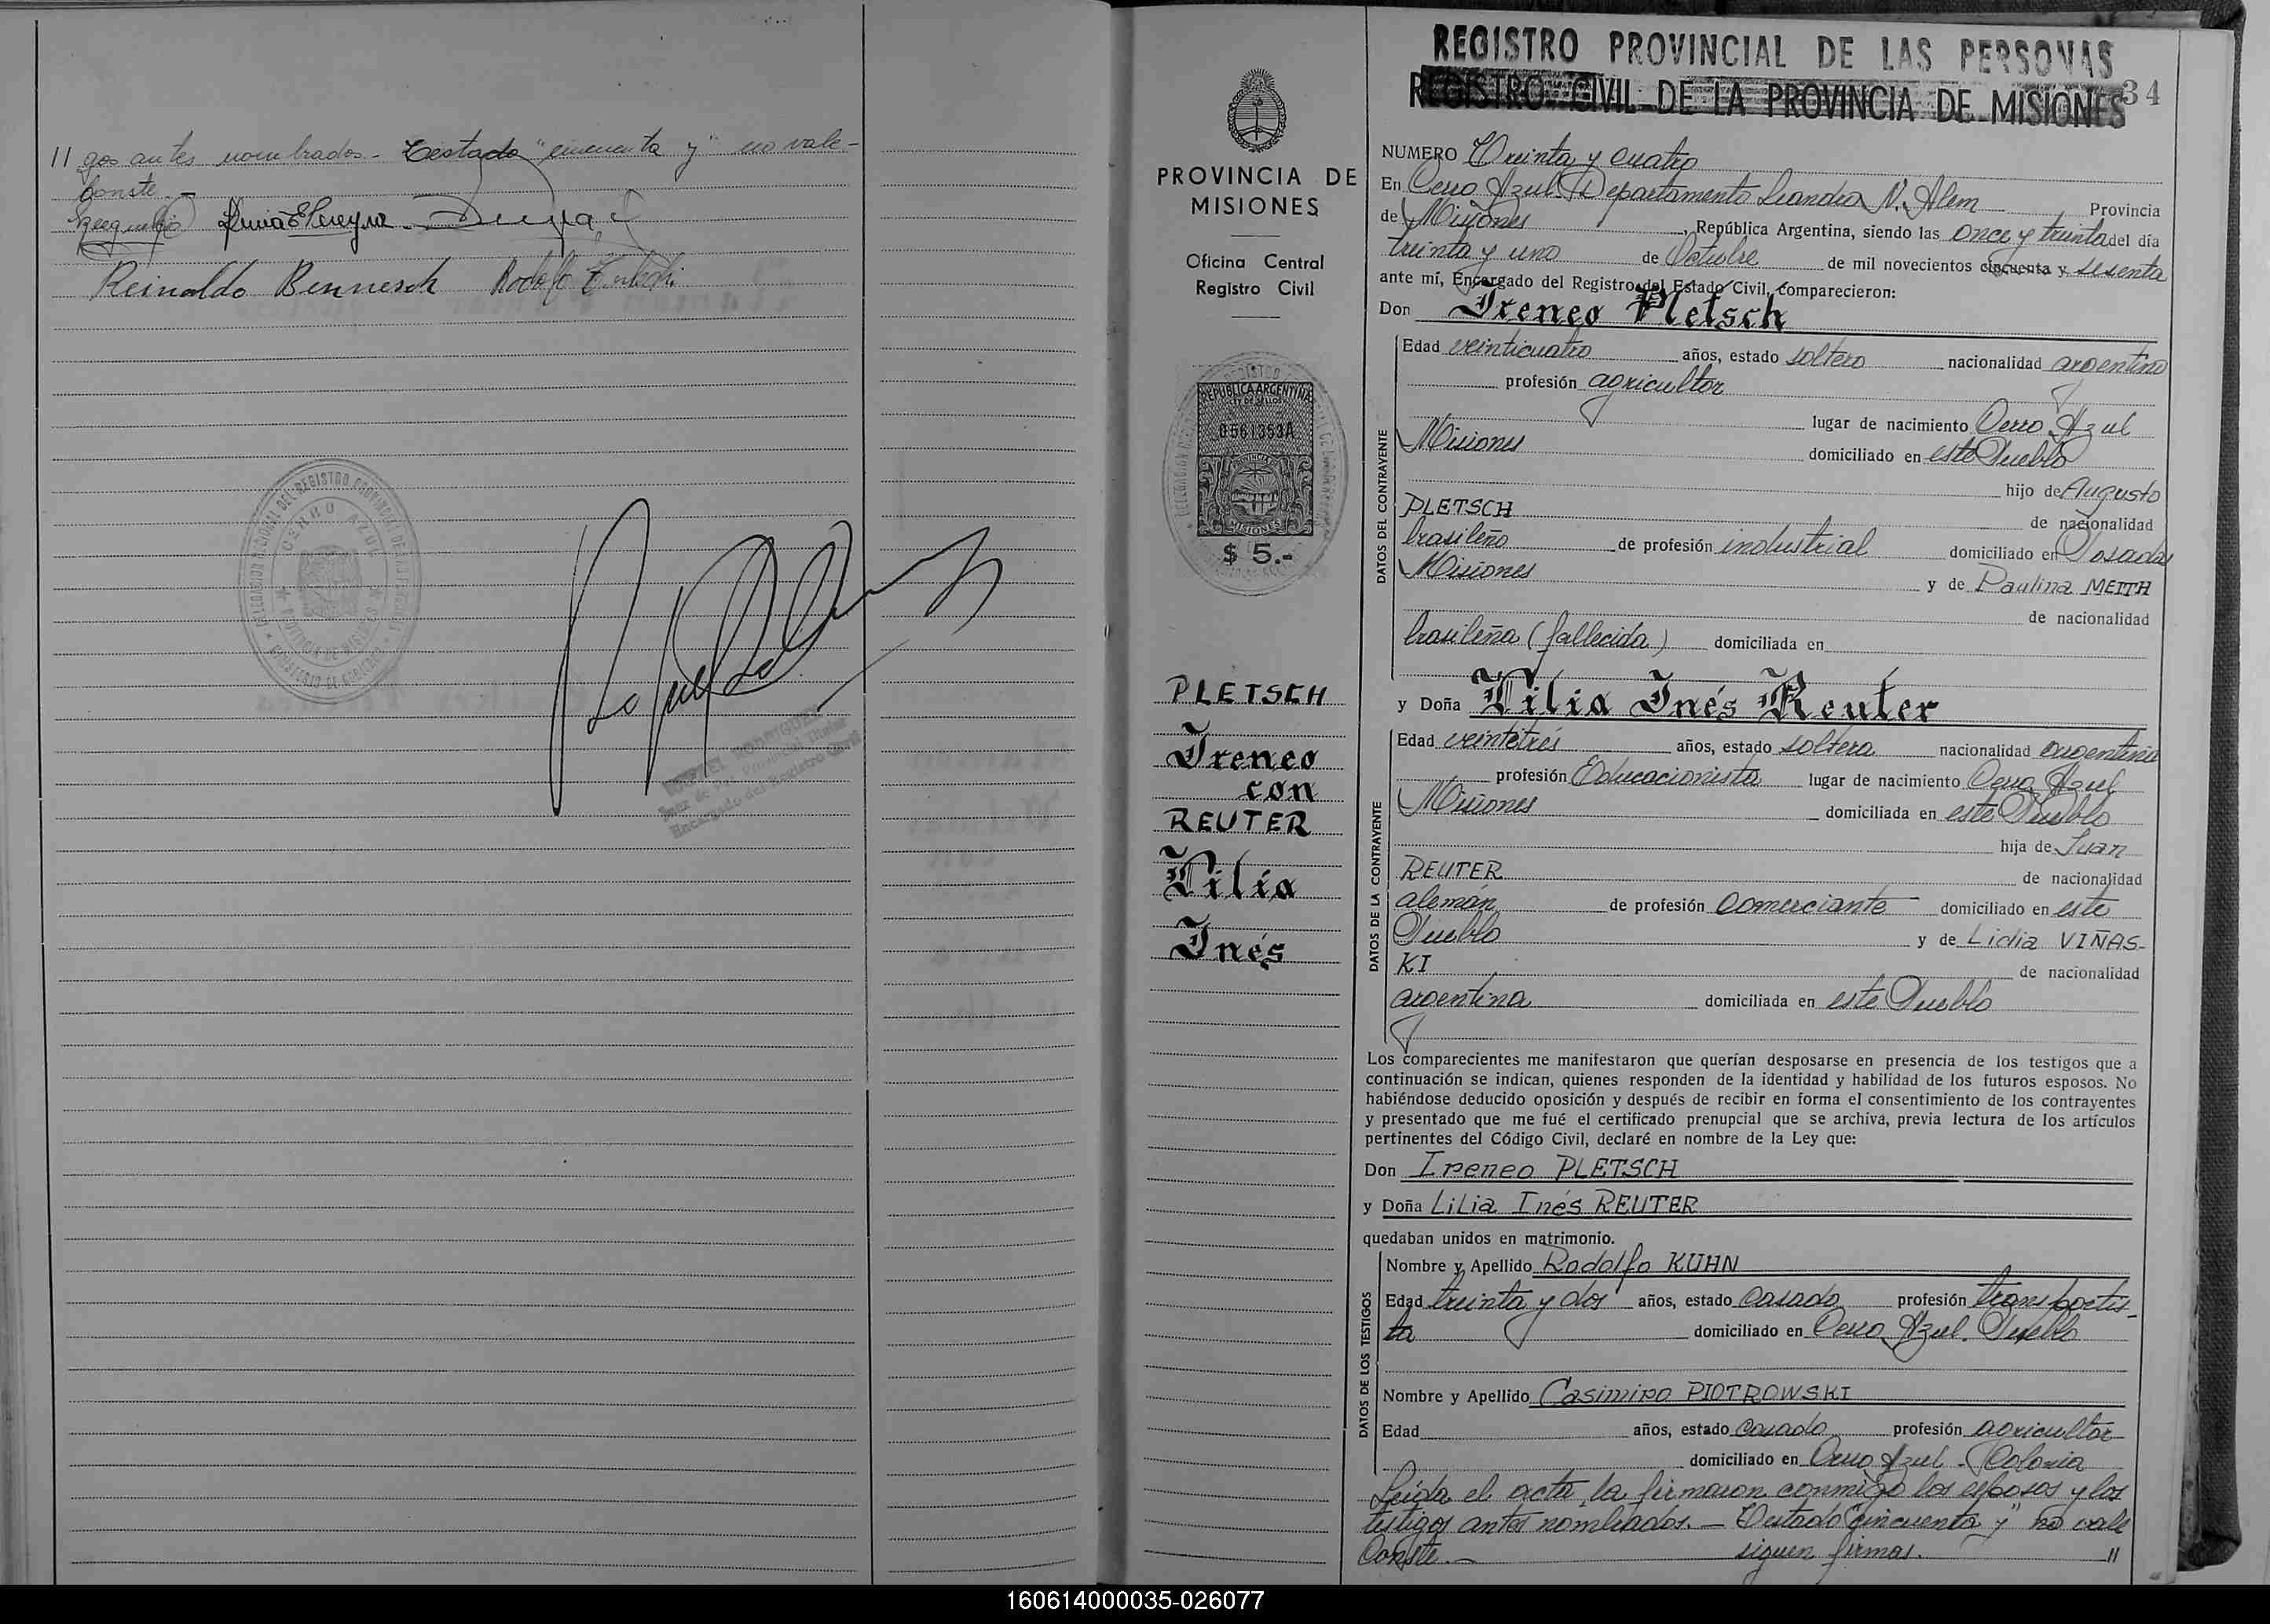 // gos antes nombrados - Testado "cincuenta y" no vale -
Conste -
Reinaldo Bennesch Rodolfo
DELEGACION REGIONAL DEL REGISTRO PROVINCIAL DE LAS PERSONAS
CERRO AZUL
Encargado del Registro Civil
PROVINCIA DE
MISIONES
Oficina Central
Registro Civil
REPUBLICA ARGENTINA
LEY DE SELLOS
0561353A
PROVINCIA
MISIONES
$ 5.-
PLETSCH
Ireneo
con
REUTER
Lilia
Inés
REGISTRO PROVINCIAL DE LAS PERSONAS
REGISTRO CIVIL DE LA PROVINCIA DE MISIONES
34
NUMERO Treinta y cuatro
En Cerro Azul Departamento Leandro N. Alem Provincia
de Misiones, República Argentina, siendo las once y treinta del día
treinta y uno de Octubre de mil novecientos cincuenta y sesenta
ante mí, Encargado del Registro del Estado Civil, comparecieron:
Don Ireneo Pletsch
DATOS DEL CONTRAYENTE
Edad veinticuatro años, estado soltero nacionalidad argentino
profesión agricultor
lugar de nacimiento Cerro Azul
Misiones domiciliado en este Pueblo
hijo de Augusto
PLETSCH de nacionalidad
brasileño de profesión industrial domiciliado en Posadas
Misiones y de Paulina MEITH
de nacionalidad
brasileña (fallecida) domiciliada en
y Doña Lilia Inés Reuter
DATOS DE LA CONTRAYENTE
Edad veintitrés años, estado soltera nacionalidad argentina
profesión Educacionista lugar de nacimiento Cerro Azul
Misiones domiciliada en este Pueblo
hija de Juan
REUTER de nacionalidad
alemán de profesión comerciante domiciliado en este
Pueblo y de Lidia VIÑAS-
KI de nacionalidad
argentina domiciliada en este Pueblo
Los comparecientes me manifestaron que querían desposarse en presencia de los testigos que a
continuación se indican, quienes responden de la identidad y habilidad de los futuros esposos. No
habiéndose deducido oposición y después de recibir en forma el consentimiento de los contrayentes
y presentado que me fué el certificado prenupcial que se archiva, previa lectura de los artículos
pertinentes del Código Civil, declaré en nombre de la Ley que:
Don Ireneo PLETSCH
y Doña Lilia Inés REUTER
quedaban unidos en matrimonio.
DATOS DE LOS TESTIGOS
Nombre y Apellido Rodolfo KUHN
Edad treinta y dos años, estado casado profesión transportis-
ta domiciliado en Cerro Azul. Pueblo
Nombre y Apellido Casimiro PIOTROWSKI
Edad años, estado casado profesión agricultor
domiciliado en Cerro Azul - Colonia
Leída el acta, la firmaron conmigo los esposos y los
testigos antes nombrados. - Testado "cincuenta y" no vale
Conste. - siguen firmas. //
160614000035-026077